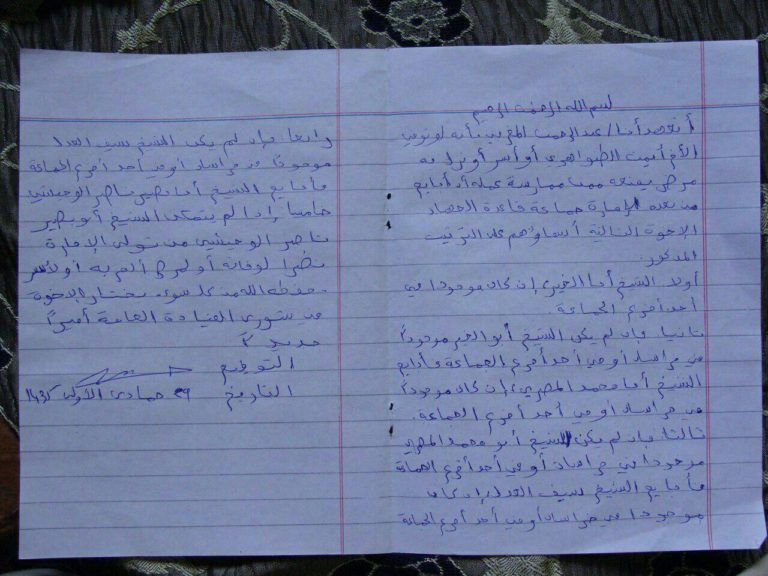 بسم الله الرحمن الرحيم
أتعهد أنا/عبدالرحمن المغربي بأنه لو توفي
الأخ أيمن الظواهري أو أسر أو نزل به
مرض يمنعه من ممارسة عمله أن أبايع
من بعده لإمارة جماعة قاعدة الجهاد
الإخوة التالية أسماؤهم على الترتيب
المذكور:
أولا الشيخ أبا الخير، إن كان موجودا في
أحد أفرع الجماعة
ثانيا فإن لم يكن الشيخ أبو الخير موجوداً
في خراسان أو في أحد أفرع الجماعة فأبايع
الشيخ أبا محمد المصري، إن كان موجوداً
في خراسان أو في أحد أفرع الجماعة.
ثالثا فإن لم يكن الشيخ أبو محمد المصري
موجودا في خراسان أو في أحد أفرع الجماعة
فأبايع الشيخ سيف العدل، إن كان
موجودا في خراسان أو في أحد أفرع الجماعة
رابعا، فإن لم يكن الشيخ سيف العدل
موجوداً في خراسان أو في أحد أفرع الجماعة
فأبايع الشيخ أبا بصير ناصر الوحيشي
خامساً إذا لم يتمكن الشيخ أبو بصير
ناصر الوحيشي من تولي الإمارة
نظرا لوفاته أو لمرض ألم به أو لأسر
حفظه الله من كل سوء، يختار الإخوة
في شورى القيادة العامة أميراً
جديداً
التوقيع
التاريخ ٢٩ جمادى الأولى ١٤٣٥